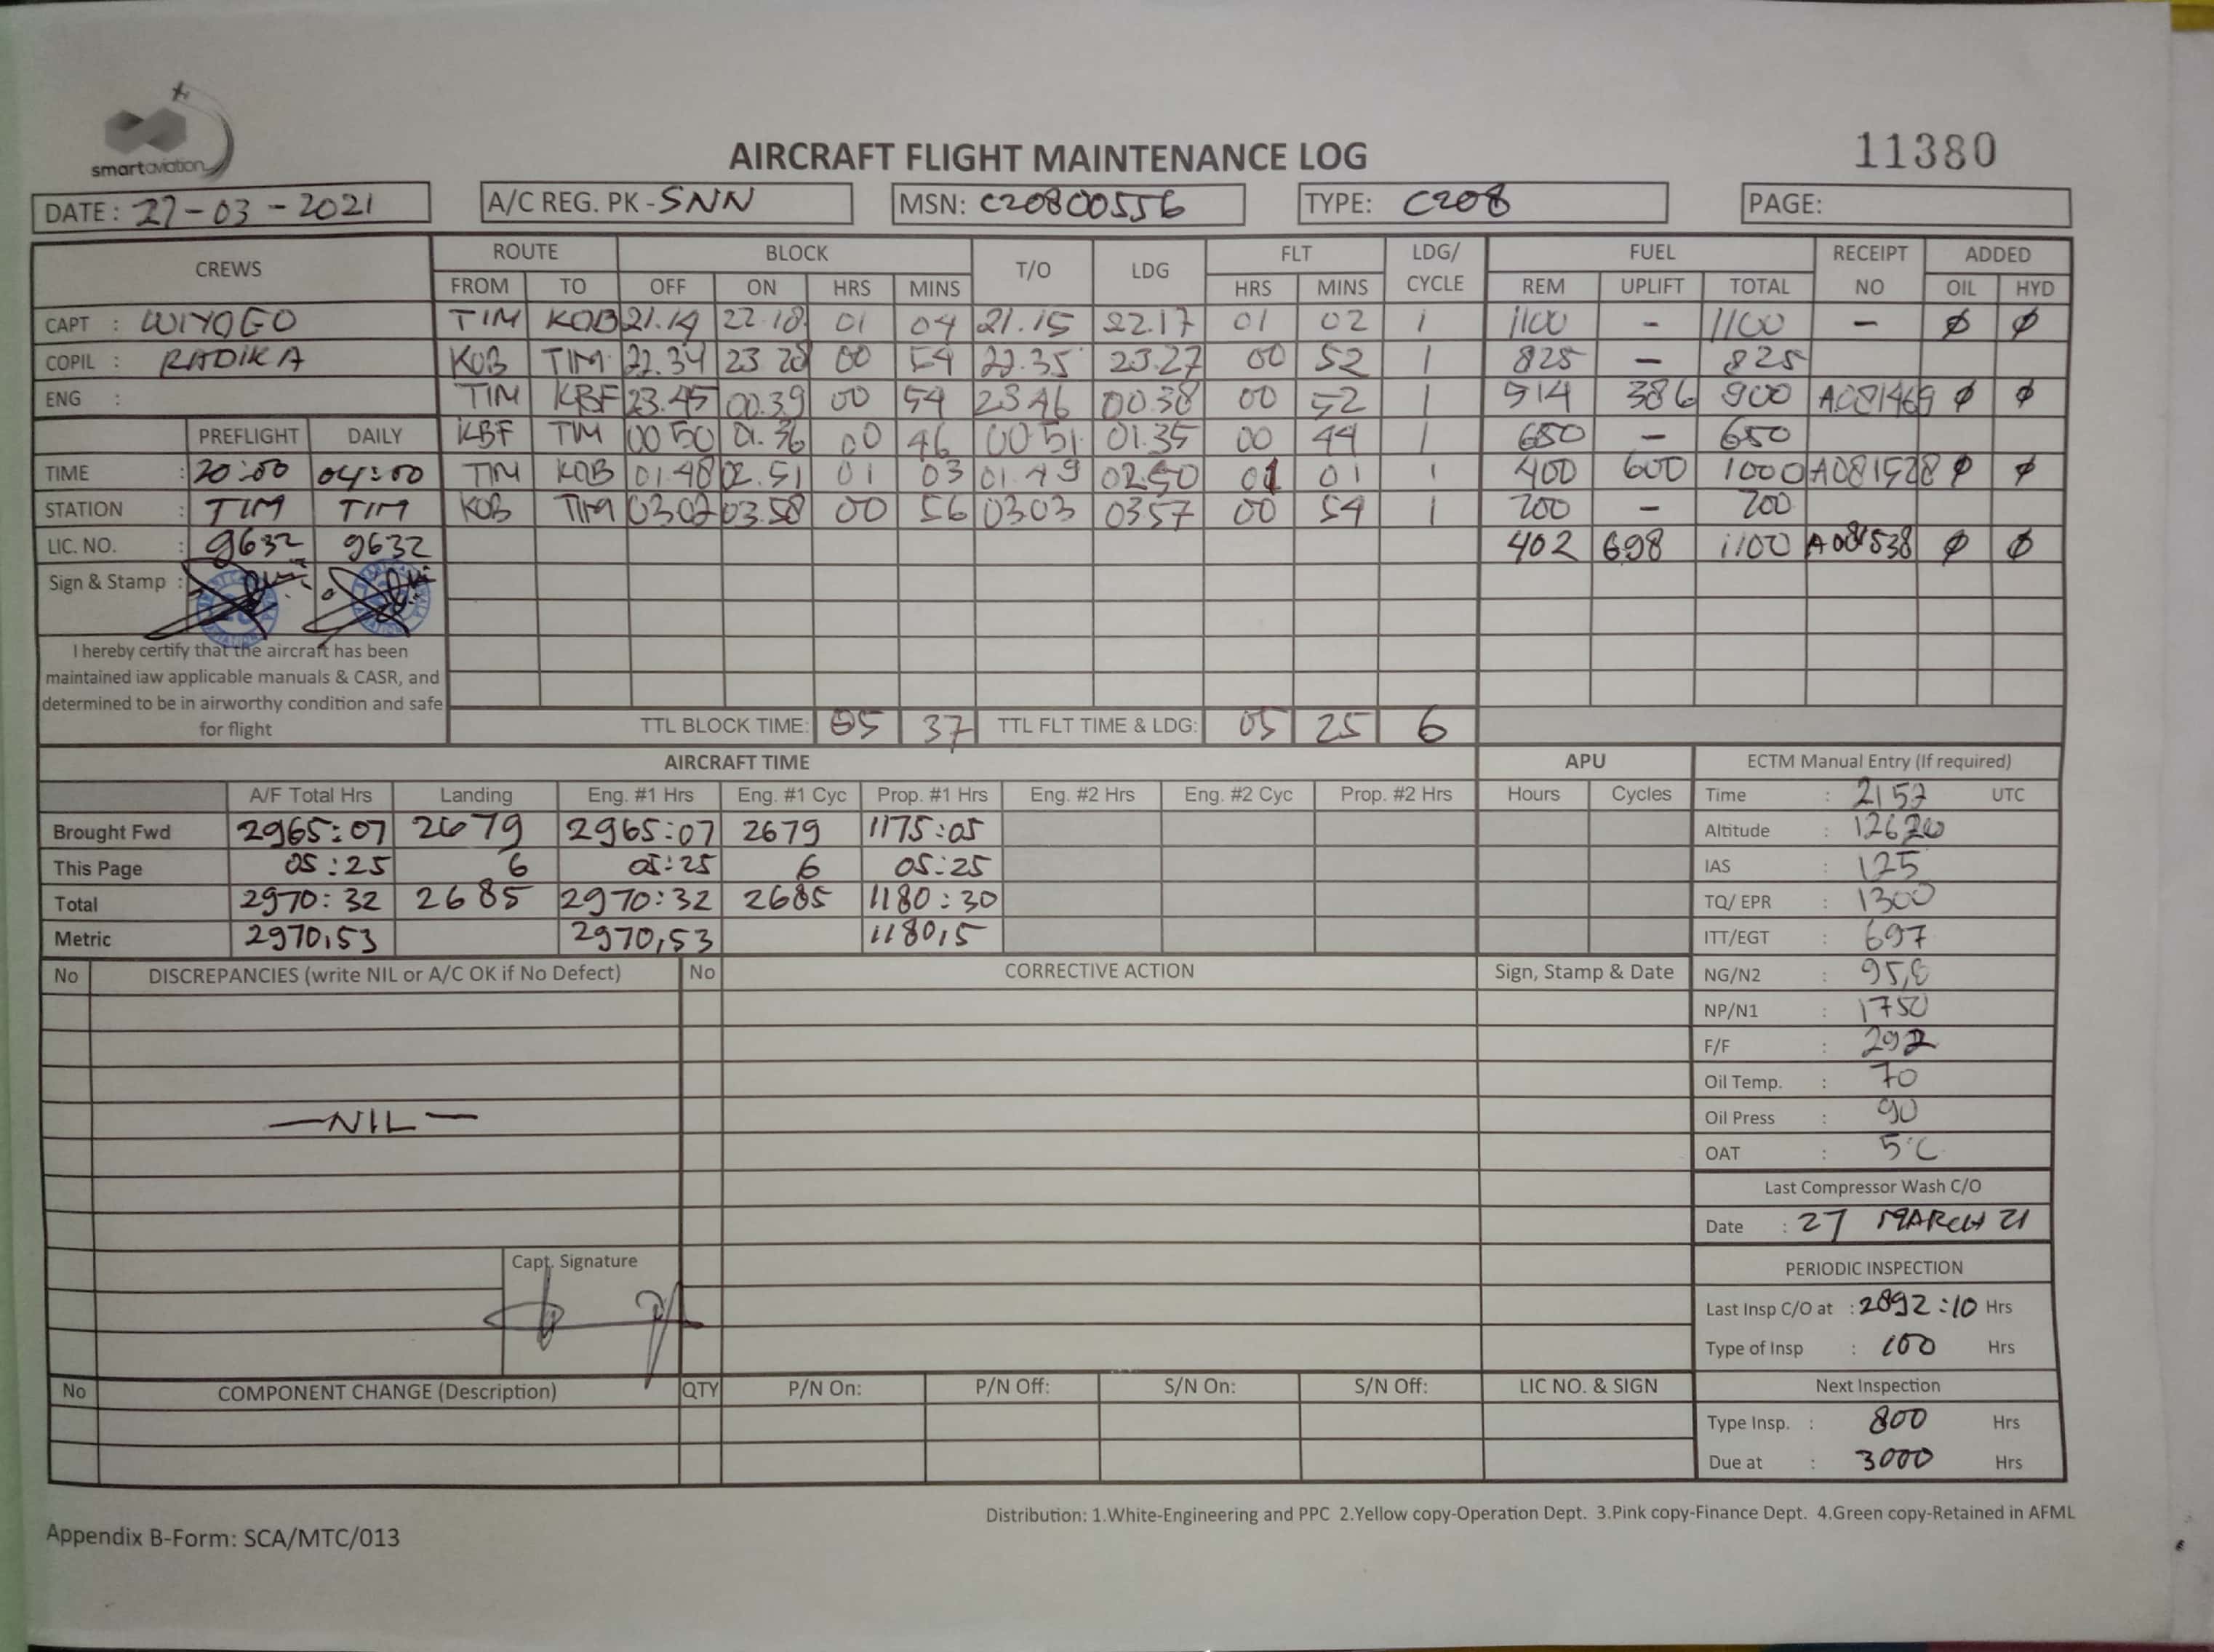 smartaviation
AIRCRAFT FLIGHT MAINTENANCE LOG
11380
DATE: 27-03-2021 A/C REG. PK-SNN MSN: C20800556 TYPE: C208 PAGE:
CREWS ROUTE BLOCK T/O LDG FLT LDG/ CYCLE FUEL RECEIPT NO ADDED
FROM TO OFF ON HRS MINS HRS MINS REM UPLIFT TOTAL OIL HYD
CAPT : WIYOGO TIM KOB 21.14 22.18 01 04 21.15 22.17 01 02 1 1100 - 1100 - ϕ ϕ
COPIL : RADIKA KOB TIM 22.34 23 28 00 54 22.35 23.27 00 52 1 825 - 825
ENG : TIM KBF 23.45 00.39 00 54 23 46 00.38 00 52 1 514 386 900 A081469 ϕ ϕ
PREFLIGHT DAILY KBF TIM 00 50 01.36 00 46 00 51 01.35 00 44 1 650 - 650
TIME : 20:00 04:00 TIM KOB 01.48 02.51 01 03 01.49 02.50 01 01 1 400 600 1000 A081528 ϕ ϕ
STATION : TIM TIM KOB TIM 03 02 03.58 00 56 03 03 03 57 00 54 1 200 - 200
LIC. NO. : 9632 9632 402 698 1100 A081538 ϕ ϕ
Sign & Stamp :
I hereby certify that the aircraft has been
maintained iaw applicable manuals & CASR, and
determined to be in airworthy condition and safe
for flight
TTL BLOCK TIME: 05 37 TTL FLT TIME & LDG: 05 25 6
AIRCRAFT TIME APU
A/F Total Hrs Landing Eng. #1 Hrs Eng. #1 Cyc Prop. #1 Hrs Eng. #2 Hrs Eng. #2 Cyc Prop. #2 Hrs Hours Cycles
Brought Fwd 2965:07 2679 2965:07 2679 1175:05
This Page 05:25 6 05:25 6 05:25
Total 2970:32 2685 2970:32 2685 1180:30
Metric 2970,53 2970,53 1180,5
ECTM Manual Entry (If required)
Time : 2157 UTC
Altitude :
IAS : 125
TQ/ EPR : 1300
ITT/EGT : 697
NG/N2 : 95,8
NP/N1 : 1750
F/F : 292
Oil Temp. : 70
Oil Press : 90
OAT : 5°C
Last Compressor Wash C/O
Date : 27 MARCH 21
PERIODIC INSPECTION
Last Insp C/O at : 2892:10 Hrs
Type of Insp : 100 Hrs
Next Inspection
Type Insp. : 800 Hrs
Due at : 3000 Hrs
No DISCREPANCIES (write NIL or A/C OK if No Defect) No CORRECTIVE ACTION Sign, Stamp & Date
—NIL—
Capt. Signature
No COMPONENT CHANGE (Description) QTY P/N On: P/N Off: S/N On: S/N Off: LIC NO. & SIGN
Distribution: 1.White-Engineering and PPC 2.Yellow copy-Operation Dept. 3.Pink copy-Finance Dept. 4.Green copy-Retained in AFML
Appendix B-Form: SCA/MTC/013